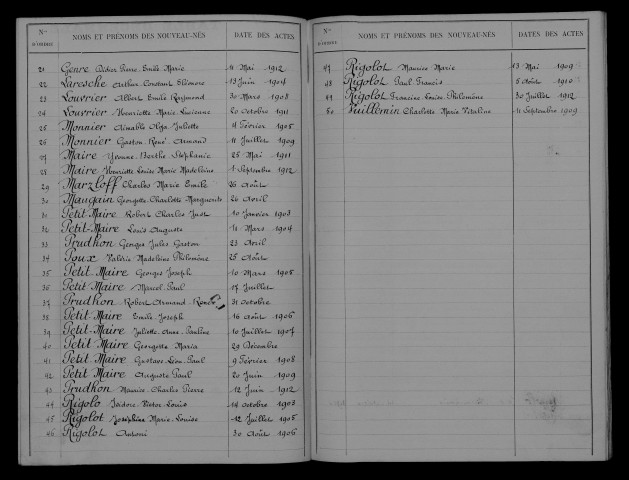 Nos D'ORDRE NOMS ET PRÉNOMS DES NOUVEAU-NÉS DATE DES ACTES
21 Genre Didier Pierre Emile Marie 11 Mai 1912
22 Laresche Arthur Constant Eléonore 13 Juin 1904
23 Louvrier Albert Emile Raymond 30 Mars 1908
24 Louvrier Henriette Marie Lucienne 20 Octobre 1911
25 Monnier Aimable Olga Juliette 11 Février 1905
26 Monnier Gaston René Armand 11 Juillet 1909
27 Maire Yvonne Berthe Stéphanie 25 Mai 1911
28 Maire Henriette Louise Marie Madeleine 1 Septembre 1912
29 Marzloff Charles Marie Emile 26 Août
30 Maugain Georgette Charlotte Marguerite 26 Avril
31 Petit-Maire Robert Charles Just 10 Janvier 1903
32 Petit-Maire Louis Auguste 11 Mars 1904
33 Prudhon Georges Jules Gaston 23 Avril
34 Poux Valérie Madeleine Philomène 25 Août
35 Petit Maire Georges Joseph 10 Mars 1905
36 Petit Maire Marcel Paul 17 Juillet
37 Prudhon Robert Armand René 31 Octobre
38 Petit-Maire Emile Joseph 16 Août 1906
39 Petit-Maire Juliette Anne Pauline 10 Juillet 1907
40 Petit Maire Georgette Maria 29 Décembre
41 Petit Maire Gustave Léon Paul 9 Février 1908
42 Petit Maire Auguste Paul 20 Juin 1909
43 Prudhon Maurice Charles Pierre 12 Juin 1912
44 Rigolo Isidore Victor Louis 14 Octobre 1903
45 Rigolot Joséphine Marie Louise 12 Juillet 1905
46 Rigolot Antoni 30 Août 1906
Nos D'ORDRE NOMS ET PRÉNOMS DES NOUVEAU-NÉS DATES DES ACTES
47 Rigolot Maurice Marie 13 Mai 1909
48 Rigolot Paul Francis 5 Août 1910
49 Rigolot Francine Louise Philomène 30 Juillet 1912
50 Vuillemin Charlotte Marie Vitaline 11 Septembre 1909